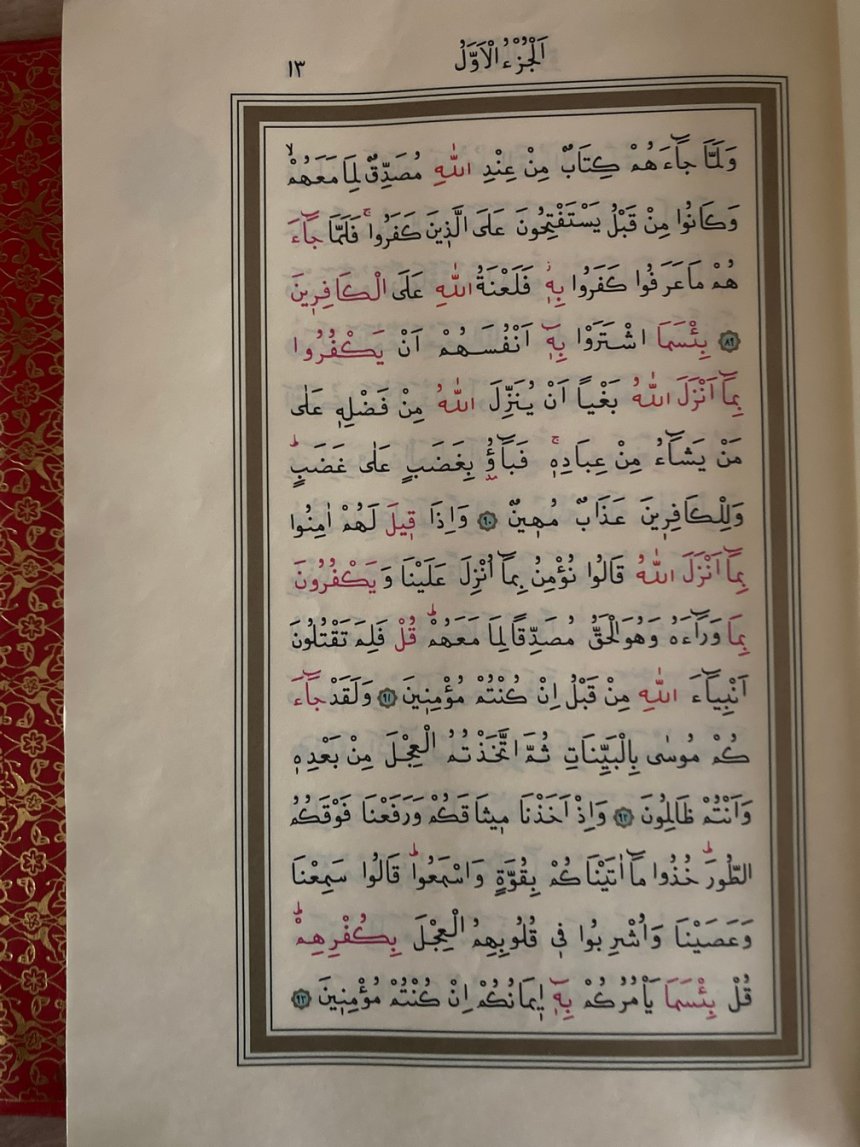 اَلْجُزْءُ الْاَوَّلُ
١٣
وَلَمَّا جَٓاءَهُمْ كِتَابٌ مِنْ عِنْدِ اللّٰهِ مُصَدِّقٌ لِمَا مَعَهُمْۙ
وَكَانُوا مِنْ قَبْلُ يَسْتَفْتِحُونَ عَلَى الَّذٖينَ كَفَرُواۚ فَلَمَّا جَٓاءَ
هُمْ مَا عَرَفُوا كَفَرُوا بِهٖؗ فَلَعْنَةُ اللّٰهِ عَلَى الْكَافِرٖينَ
﴿٨٩﴾ بِئْسَمَا اشْتَرَوْا بِهٖٓ اَنْفُسَهُمْ اَنْ يَكْفُرُوا
بِمَٓا اَنْزَلَ اللّٰهُ بَغْياً اَنْ يُنَزِّلَ اللّٰهُ مِنْ فَضْلِهٖ عَلٰى
مَنْ يَشَٓاءُ مِنْ عِبَادِهٖۚ فَبَٓاؤُ۫ بِغَضَبٍ عَلٰى غَضَبٍؕ
وَلِلْكَافِرٖينَ عَذَابٌ مُهٖينٌ ﴿٩٠﴾ وَاِذَا قٖيلَ لَهُمْ اٰمِنُوا
بِمَٓا اَنْزَلَ اللّٰهُ قَالُوا نُؤْمِنُ بِمَٓا اُنْزِلَ عَلَيْنَا وَيَكْفُرُونَ
بِمَا وَرَٓاءَهُ وَهُوَ الْحَقُّ مُصَدِّقاً لِمَا مَعَهُمْؕ قُلْ فَلِمَ تَقْتُلُونَ
اَنْبِيَٓاءَ اللّٰهِ مِنْ قَبْلُ اِنْ كُنْتُمْ مُؤْمِنٖينَ ﴿٩١﴾ وَلَقَدْ جَٓاءَ
كُمْ مُوسٰى بِالْبَيِّنَاتِ ثُمَّ اتَّخَذْتُمُ الْعِجْلَ مِنْ بَعْدِهٖ
وَاَنْتُمْ ظَالِمُونَ ﴿٩٢﴾ وَاِذْ اَخَذْنَا مٖيثَاقَكُمْ وَرَفَعْنَا فَوْقَكُمُ
الطُّورَؕ خُذُوا مَٓا اٰتَيْنَاكُمْ بِقُوَّةٍ وَاسْمَعُواؕ قَالُوا سَمِعْنَا
وَعَصَيْنَا وَاُشْرِبُوا فٖي قُلُوبِهِمُ الْعِجْلَ بِكُفْرِهِمْؕ
قُلْ بِئْسَمَا يَأْمُرُكُمْ بِهٖٓ اٖيمَانُكُمْ اِنْ كُنْتُمْ مُؤْمِنٖينَ ﴿٩٣﴾